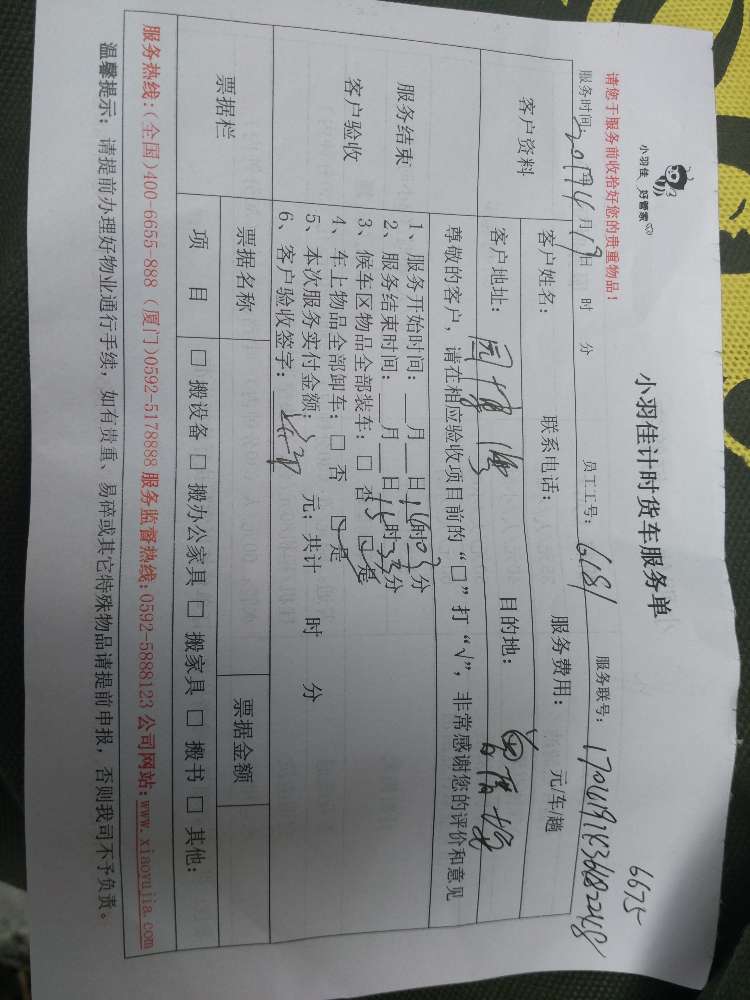 小羽佳 好管家
小羽佳计时货车服务单
6675
请您于服务前收拾好您的贵重物品!
服务时间: 2017年4月19日 时 分 员工工号: 6181 服务联号:
客户资料 客户姓名: 联系电话: 服务费用: 元/车/趟
客户地址: 目的地:
服务结束 客户验收
尊敬的客户,请在相应验收项目前的“□”打“√”,非常感谢您的评价和意见
1、服务开始时间: 月 日 时 分
2、服务结束时间: 月 日 时 分
3、候车区物品全部装车: □ 否 □ 是
4、车上物品全部卸车: □ 否 □ 是
5、本次服务实付金额: 元; 共计 时 分
6、客户验收签字:
票据栏 票据名称 票据金额
项 目 □ 搬设备 □ 搬办公家具 □ 搬家具 □ 搬书 □ 其他:
服务热线:(全国)400-6655-888 (厦门)0592-5178888 服务监督热线:0592-5888123 公司网站:www.xiaoyujia.com
温馨提示: 请提前办理好物业通行手续, 如有贵重、易碎或其它特殊物品请提前申报, 否则我司不予负责。